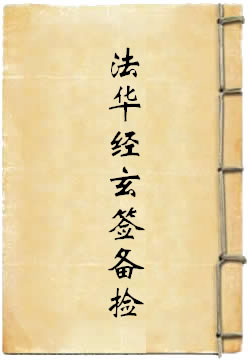 法华经玄签备捡